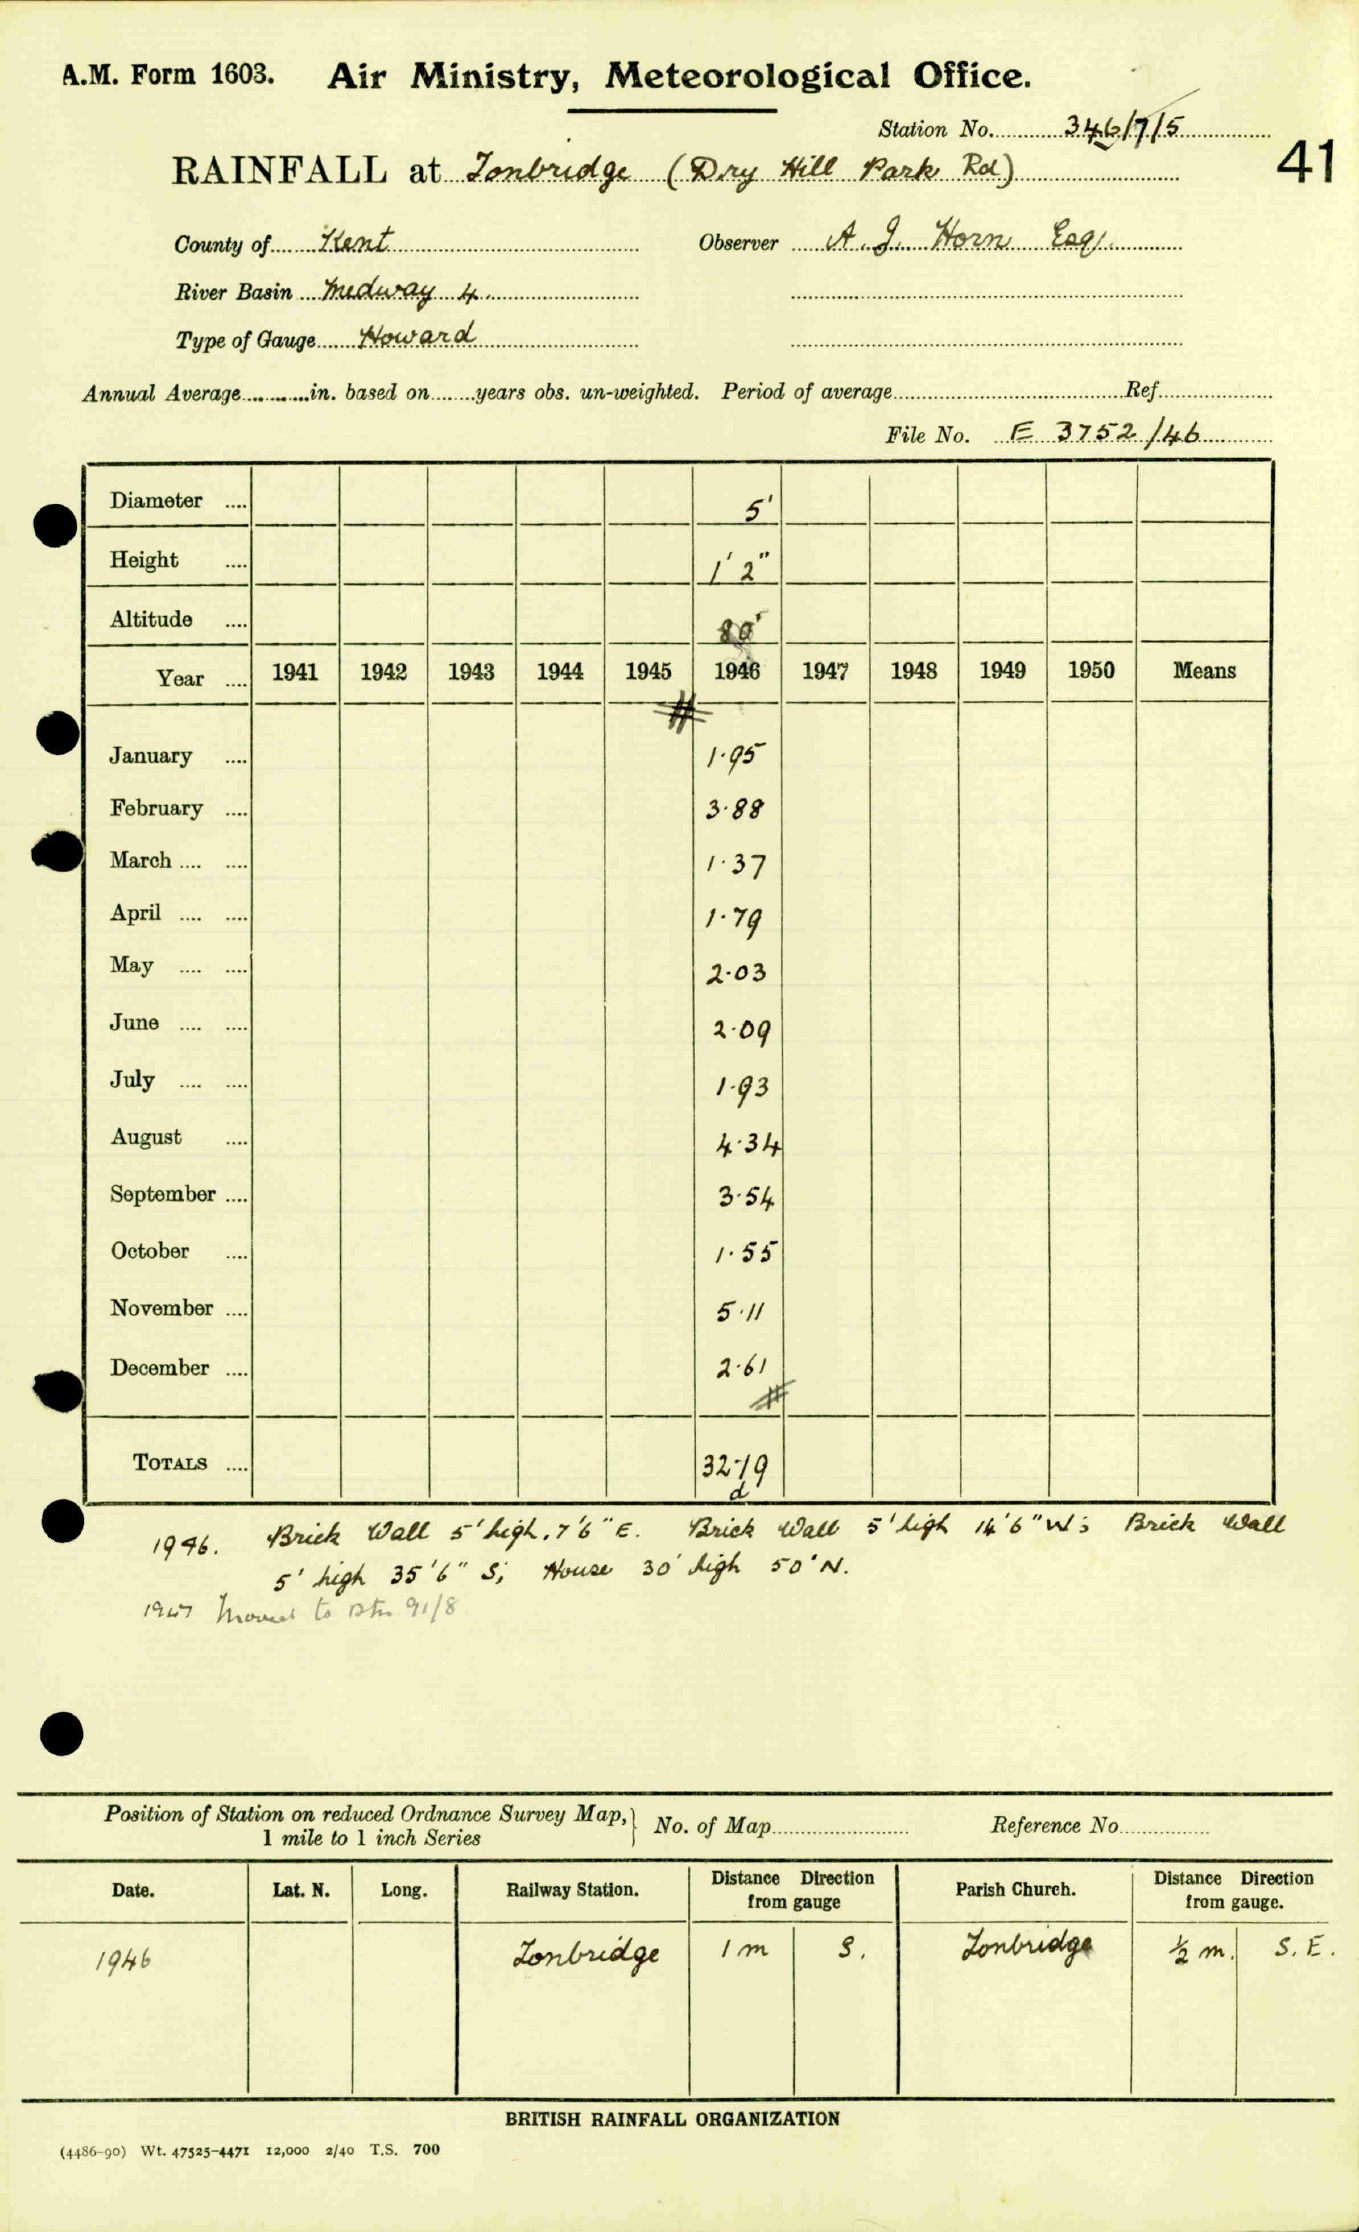 A.M. Form 1603. Air Ministry, Meteorological Office.
Station No. 346/7/5
41
RAINFALL at Tonbridge (Dry Hill Park Rd)
County of Kent Observer A. J. Horn Esq.
River Basin Medway 4.
Type of Gauge Howard
Annual Average in. based on years obs. un-weighted. Period of average Ref.
File No. E 3752/46
Diameter 5'
Height 1' 2"
Altitude 80'
Year 1941 1942 1943 1944 1945 1946 1947 1948 1949 1950 Means
January 1.95
February 3.88
March 1.37
April 1.79
May 2.03
June 2.09
July 1.93
August 4.34
September 3.54
October 1.55
November 5.11
December 2.61
TOTALS 32.19
d
1946. Brick Wall 5' high, 7'6" E. Brick Wall 5' high 14'6" W; Brick Wall
5' high 35'6" S; House 30' high 50' N.
1947 Moved to Stn 91/8
Position of Station on reduced Ordnance Survey Map, 1 mile to 1 inch Series } No. of Map Reference No.
Date. Lat. N. Long. Railway Station. Distance Direction from gauge Parish Church. Distance Direction from gauge.
1946 Tonbridge 1 m S. Tonbridge ½ m. S.E.
BRITISH RAINFALL ORGANIZATION
(4486-90) Wt. 47525-4471 12,000 2/40 T.S. 700